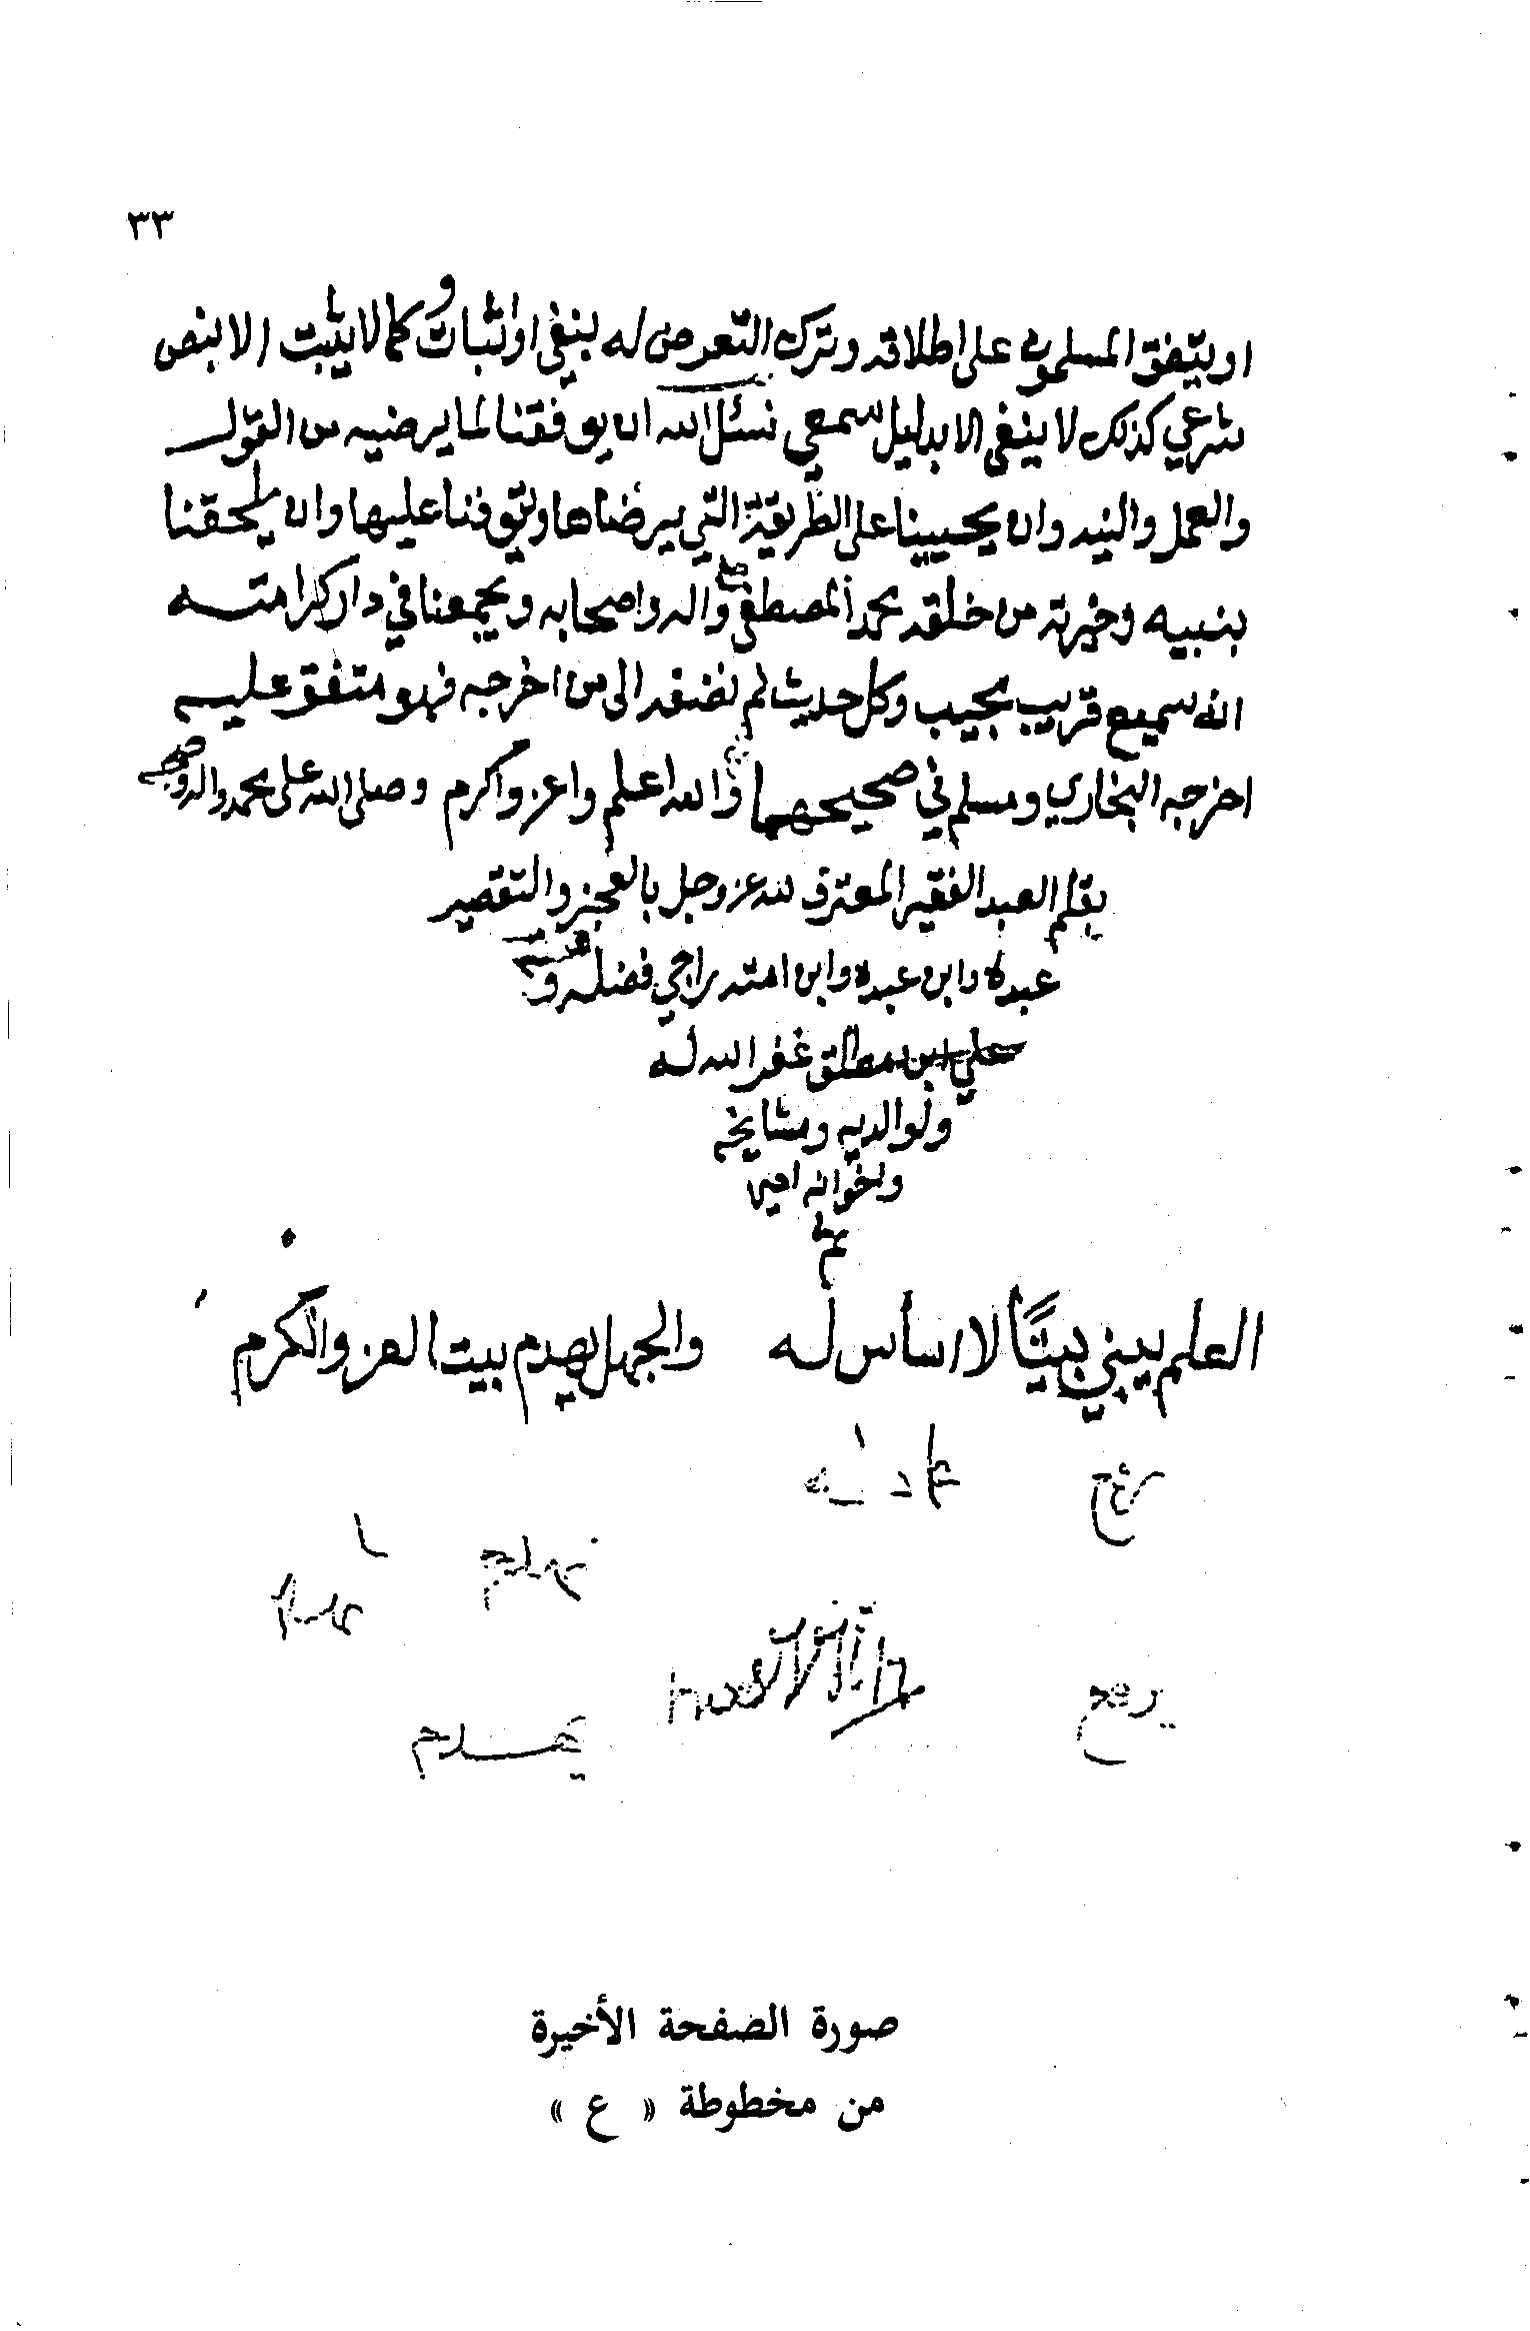 ٣٣
او يتفق المسلمون على اطلاقه وترك التعرض له بنفي او اثبات وكما لا يثبت الا بنص
شرعي كذلك لا ينفى الا بدليل سمعي نسئل الله ان يوفقنا لما يرضيه من القول
والعمل والنيه وان يحيينا على الطريقة التي يرضاها ويتوفنا عليها وان يلحقنا
بنبيه وخيرته من خلقه محمد المصطفى واله واصحابه ويجمعنا في دار كرامته
انه سميع قريب مجيب وكل حديث لم نضفه الى من اخرجه فهو متفق عليه
اخرجه البخاري ومسلم في صحيحهما والله اعلم واعز واكرم وصلى الله على محمد واله وصحبه
بقلم العبد الفقير المعترف لله عز وجل بالعجز والتقصير
عبده وابن عبده وابن امته راجي فضله و
علي ابن مطلق غفر الله له
ولوالديه ومشايخه
ولاخوانه امين
تم
العلم يبني بيتًا لا اساس له والجهل يهدم بيت العز والكرم
يهدم
صورة الصفحة الأخيرة
من مخطوطة « ع »